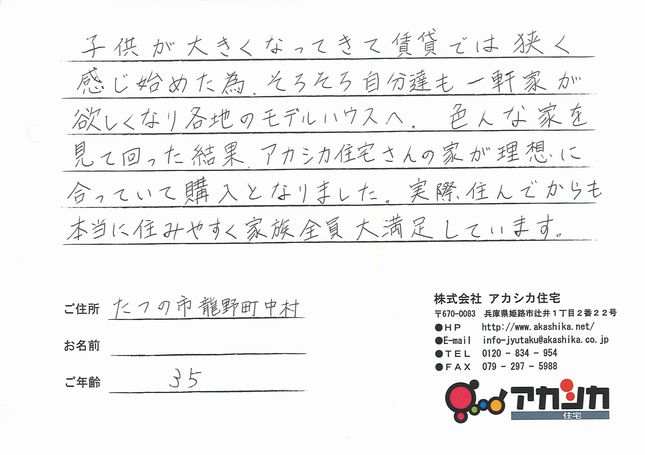 子供が大きくなってきて賃貸では狭く
感じ始めた為、そろそろ自分達も一軒家が
欲しくなり各地のモデルハウスへ。色んな家を
見て回った結果、アカシカ住宅さんの家が理想に
合っていて購入となりました。実際住んでからも
本当に住みやすく家族全員大満足しています。
ご住所 たつの市龍野町中村
お名前
ご年齢 35
株式会社 アカシカ住宅
〒670-0083 兵庫県姫路市辻井1丁目2番22号
●HP http://www.akashika.net/
●E-mail info-jyutaku@akashika.co.jp
●TEL 0120-834-954
●FAX 079-297-5988
アカシカ
住宅